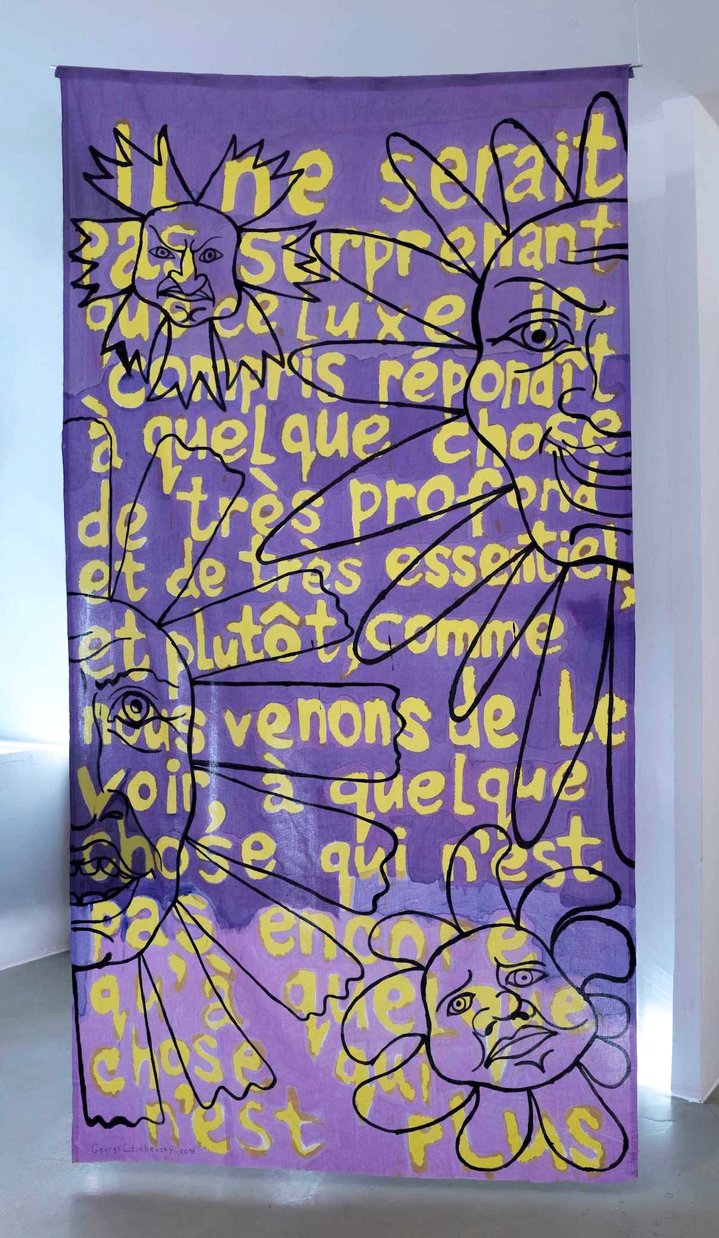 il ne serait
pas surprenant
que ce luxe in-
compris répondît
à quelque chose
de très profond
et de très essentiel,
et plutôt, comme
nous venons de le
voir, à quelque
chose qui n'est
pas encore
qu'à quelque
chose qui
n'est PLUS